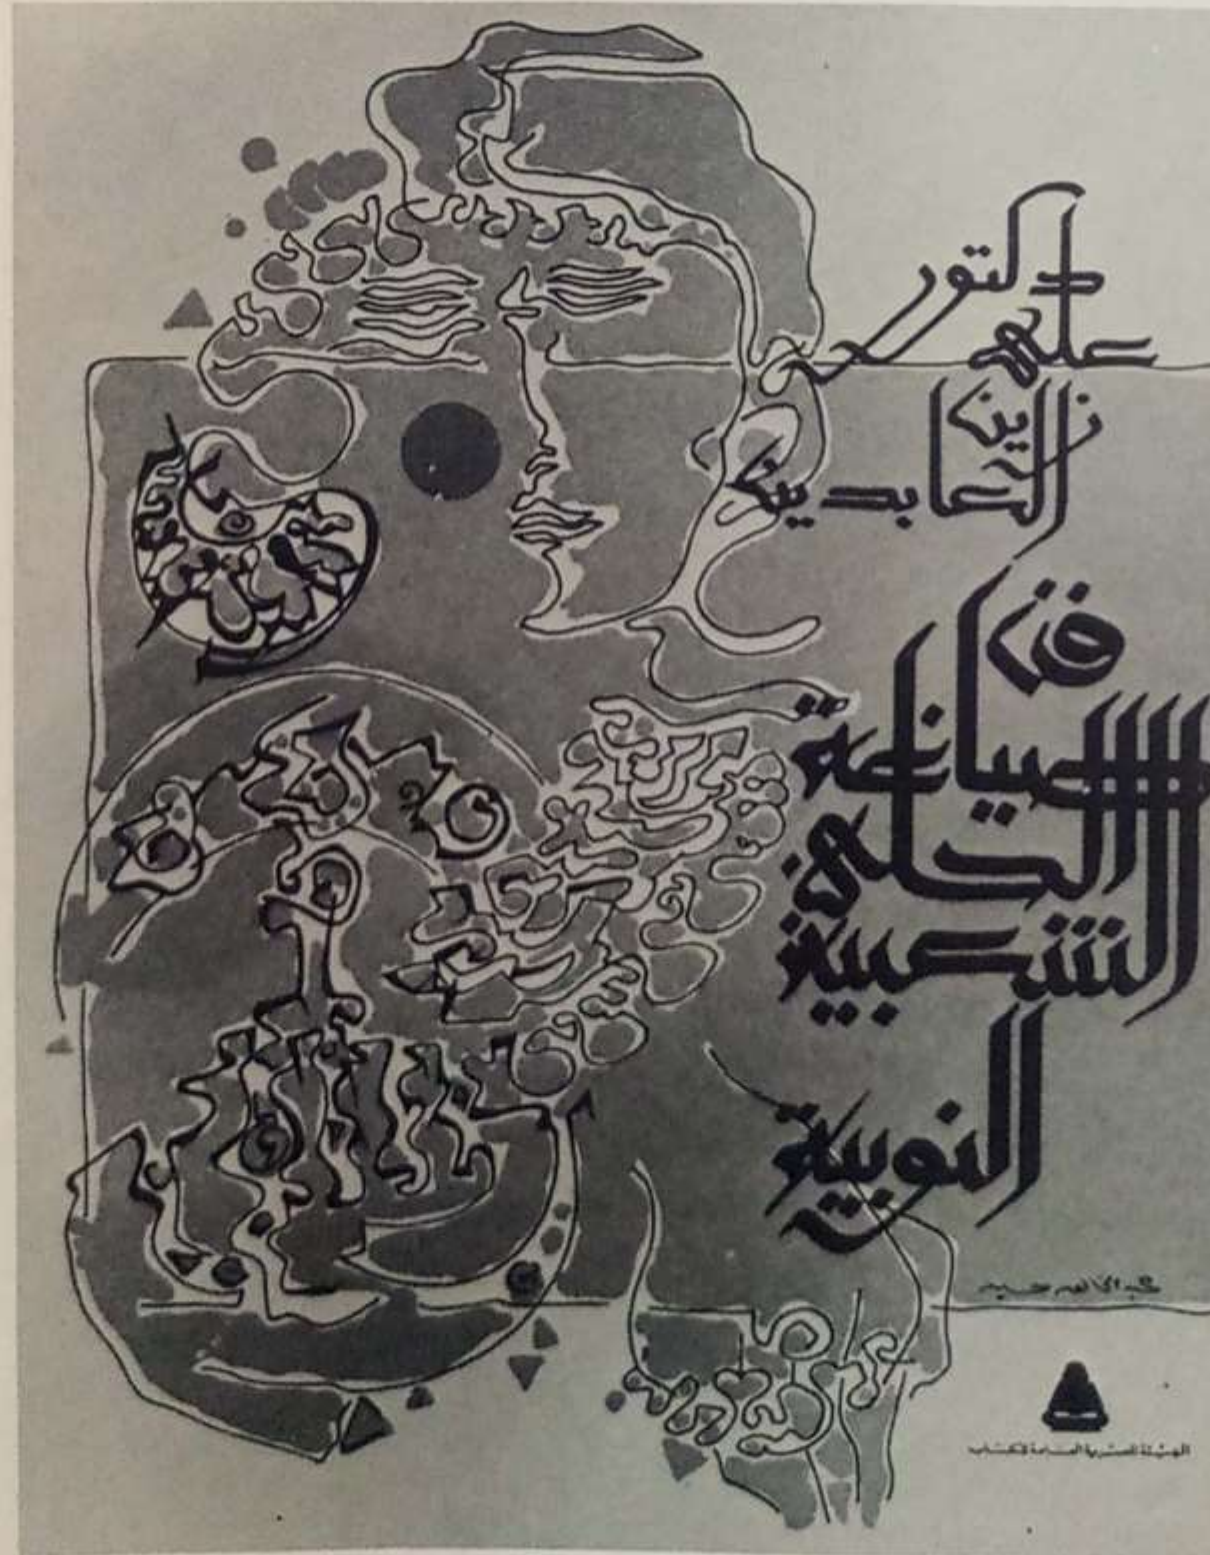 دكتور
على
زين
العابدين
فن
صياغة
الحلى
الشعبية
النوبية
الهيئة المصرية العامة للكتاب